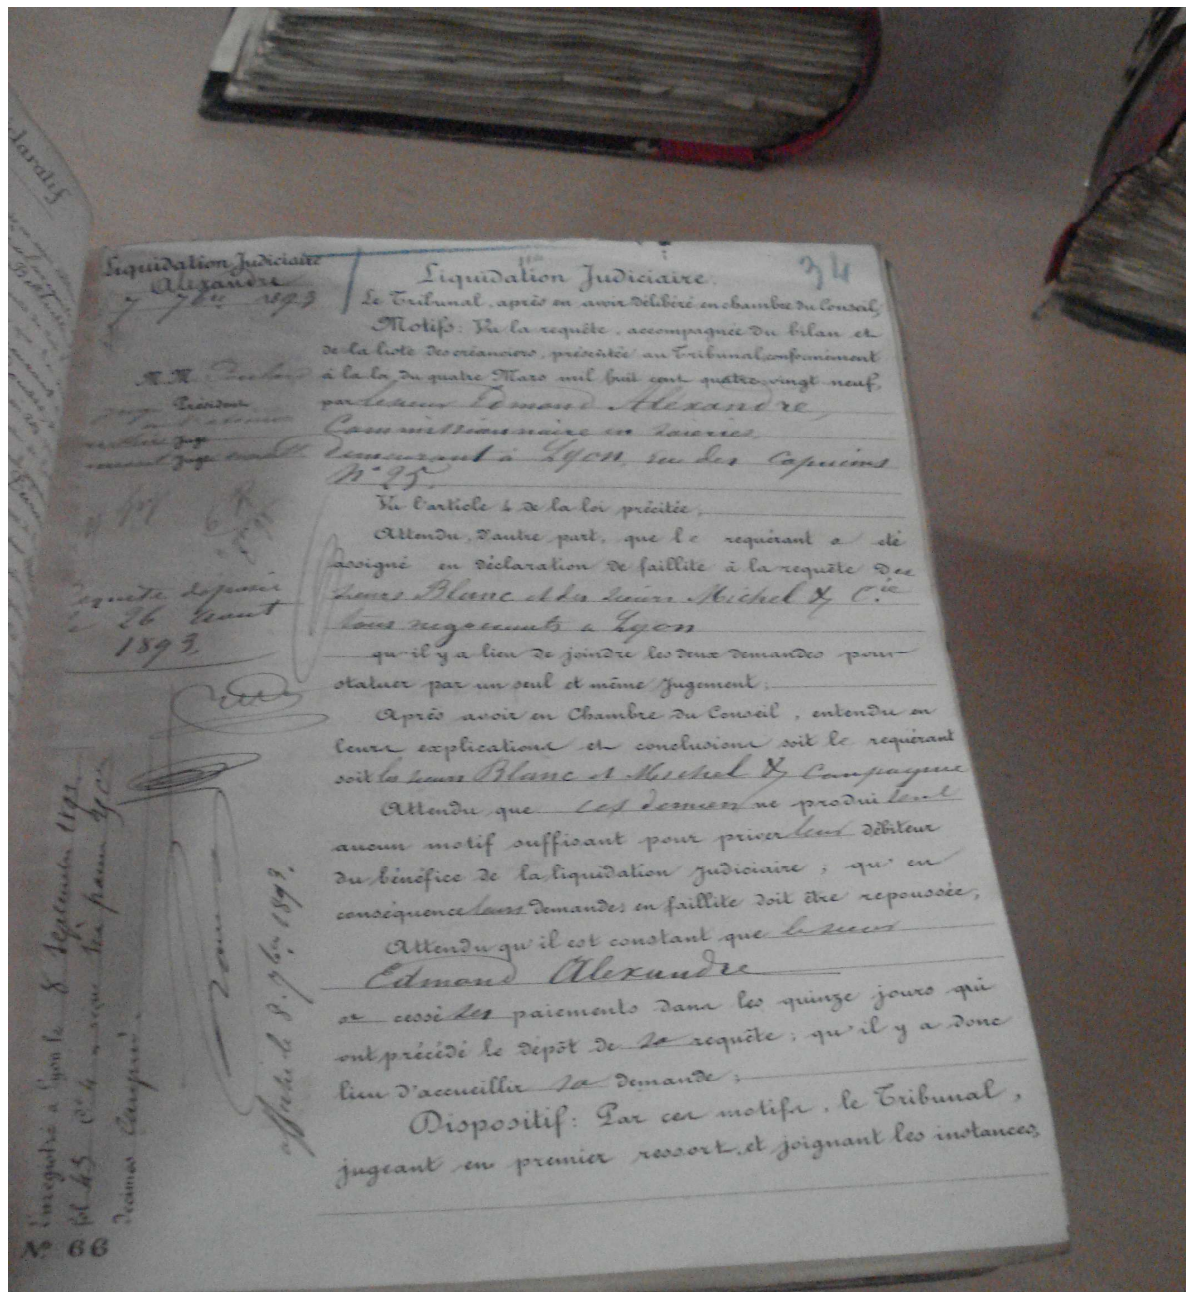 Liquidation Judiciaire
Alexandre
7 7bre 1893
M.M.
Président
juge
juge
Requête déposée
le 26 Aout
1893
Enregistré à Lyon le 8 Septembre 1893
fol 45 Ce 4
décimes compris.
Affiché le 8. 7bre 1893.
Nº 66
34
Liquidation Judiciaire.
Le Tribunal, après en avoir délibéré en chambre du Conseil,
Motifs: Vu la requête, accompagnée du bilan et
de la liste des créanciers, présentée au Tribunal, conformément
à la loi du quatre Mars mil huit cent quatre-vingt neuf,
par le sieur Edmond Alexandre,
Commissionnaire en soieries,
demeurant à Lyon, rue des Capucins
Nº 25.
Vu l'article 4 de la loi précitée;
Attendu, d'autre part, que le requérant a été
assigné en déclaration de faillite à la requête des
sieurs Blanc et des sieurs Michel & Cie
tous negociants a Lyon
qu'il y a lieu de joindre les deux demandes pour
statuer par un seul et même Jugement;
Après avoir en Chambre du Conseil, entendu en
leurs explications et conclusions soit le requérant
soit les sieurs Blanc et Michel & Compagnie
Attendu que ces derniers ne produisent
aucun motif suffisant pour priver leur débiteur
du bénéfice de la liquidation Judiciaire; qu'en
conséquence leurs demandes en faillite doit être repoussée;
Attendu qu'il est constant que le sieur
Edmond Alexandre
a cessé ses paiements dans les quinze jours qui
ont précédé le dépôt de sa requête; qu'il y a donc
lieu d'accueillir sa demande;
Dispositif: Par ces motifs, le Tribunal,
jugeant en premier ressort, et joignant les instances,